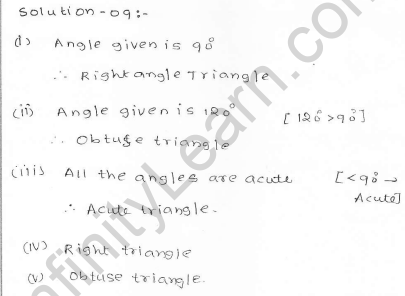 Solution-09:-
(i) Angle given is 90°
∴ Right angle Triangle
(ii) Angle given is 120° [120° > 90°]
∴ Obtuse triangle
(iii) All the angles are acute [<90° →
Acute]
∴ Acute triangle.
(iv) Right triangle
(v) Obtuse triangle.
infinityLearn.com